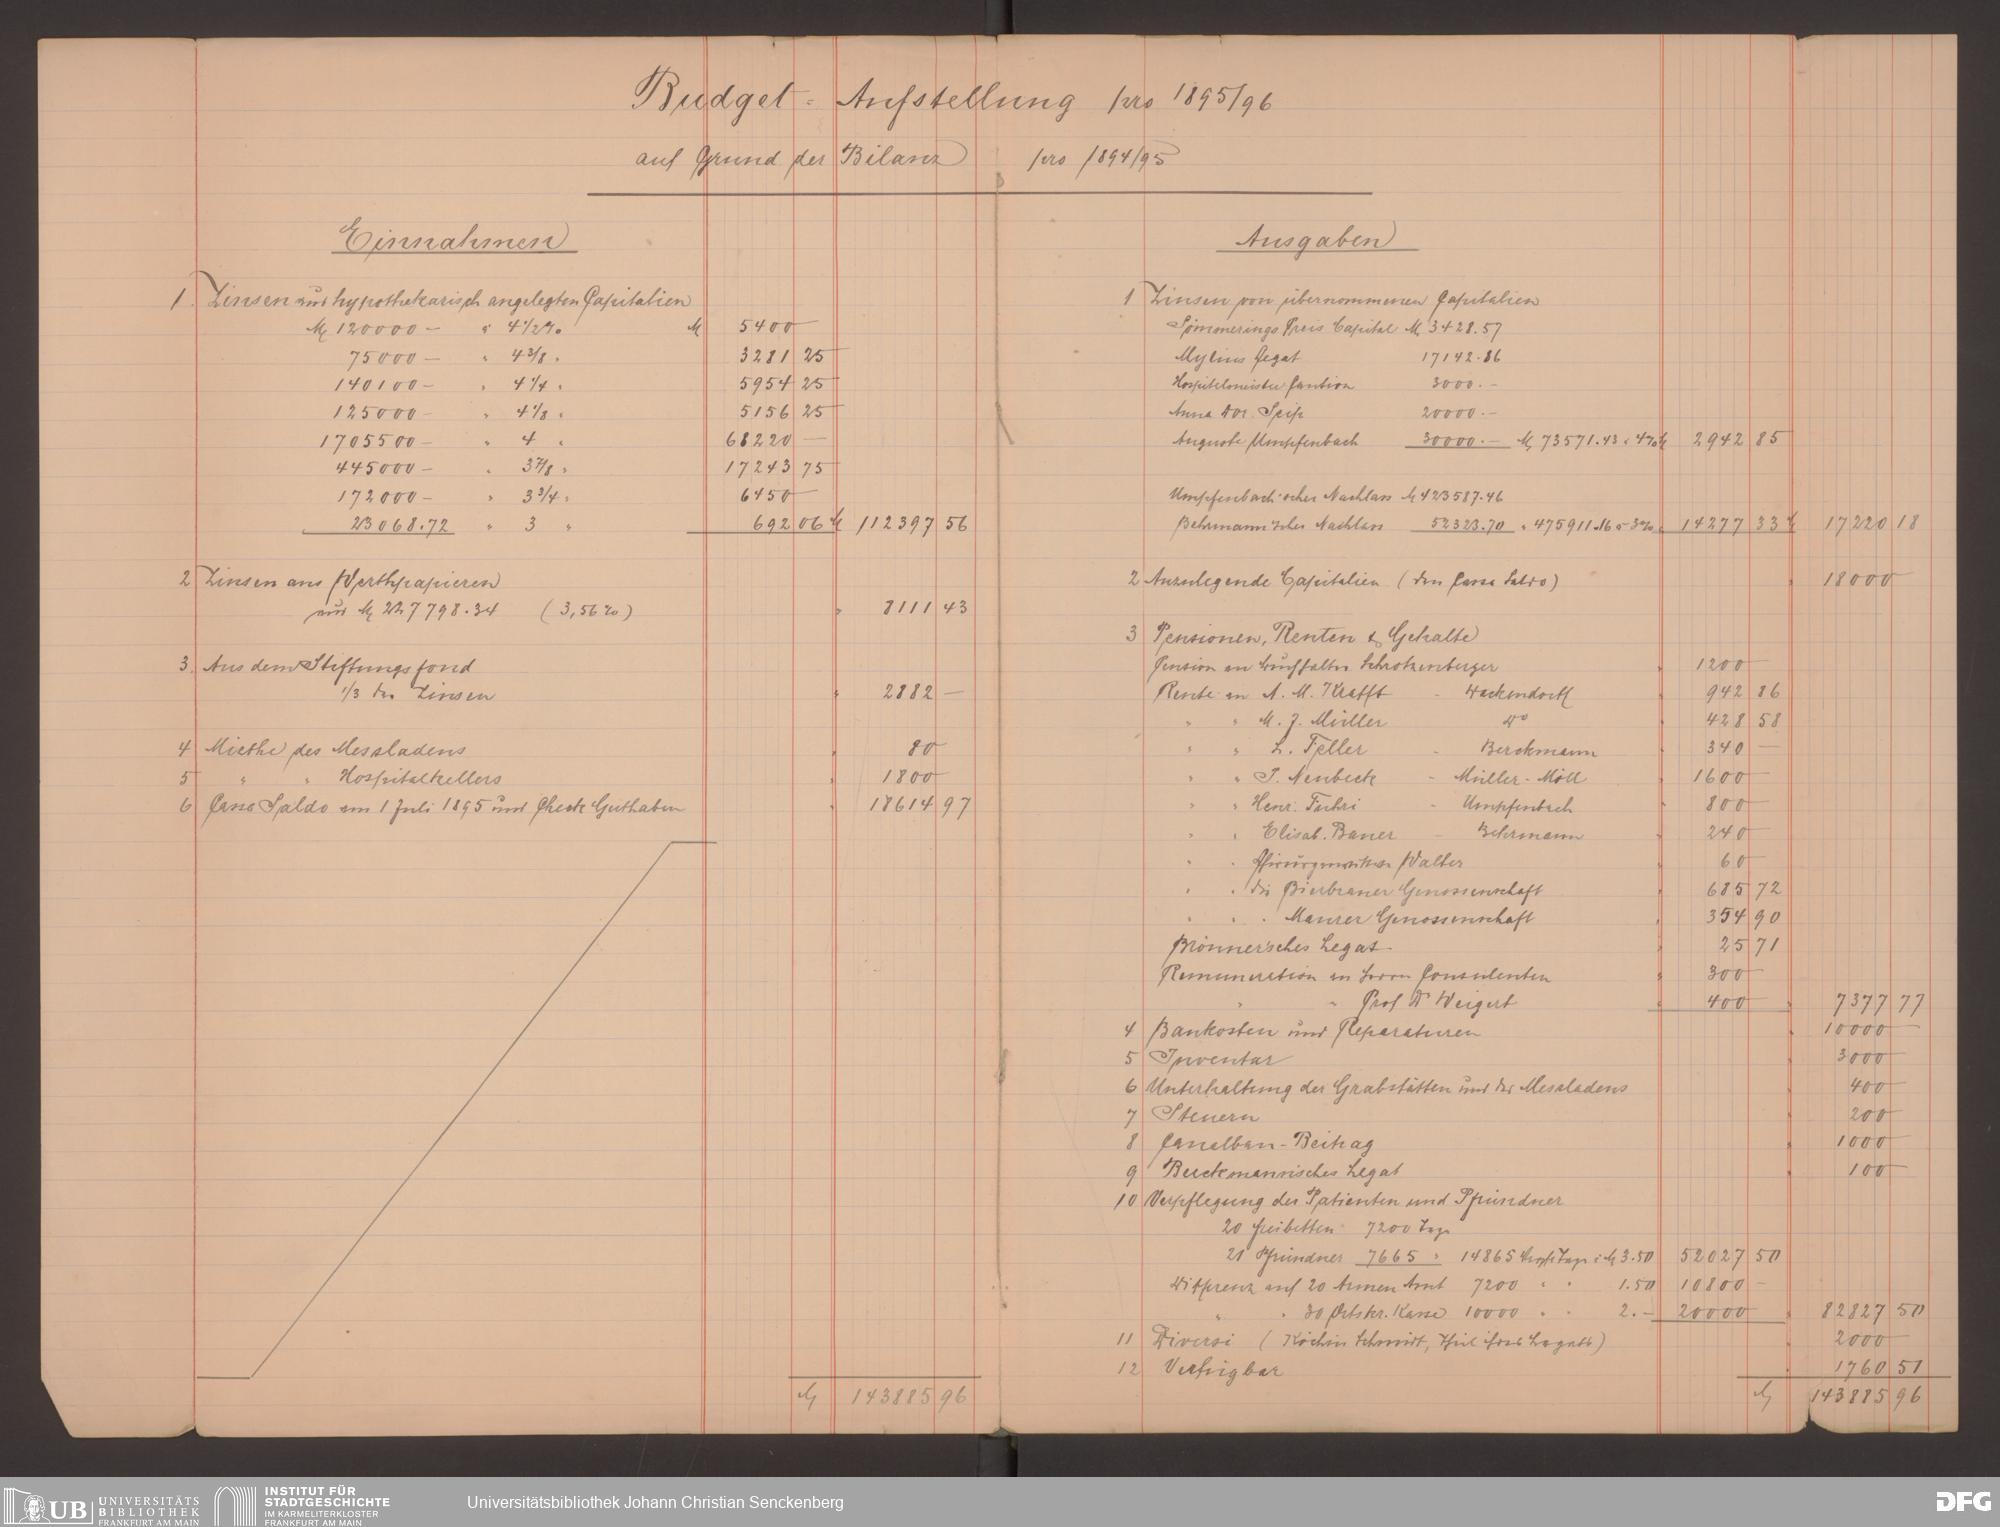 Budget-Aufstellung pro 1895/96
auf Grund der Bilanz pro 1894/95
Einnahmen
1. Zinsen aus hypothekarisch angelegten Capitalien
M 120000 – " 4 1/2 % M 5400 –
75000 – " 4 3/8 " 3281 25
140100 – " 4 1/4 " 5954 25
125000 – " 4 1/8 " 5156 25
1705500 – " 4 " 68220 –
445000 – " 3 7/8 " 17243 75
172000 – " 3 3/4 " 6450 –
23068.72 " 3 " 692 06 M 112397 56
2 Zinsen aus Werthpapieren
aus M 227798.34 (3,56 %) " 8111 43
3. Aus dem Stiftungsfond
1/3 der Zinsen " 2882 –
4 Miethe des Messladens " 80 –
5 " " Hospitalkellers " 1800 –
6 Cassa Saldo am 1 Juli 1895 und Check Guthaben " 18614 97
M 143885 96
Ausgaben
1 Zinsen von übernommenen Capitalien
Sömmerings Preis Capital M 3428.57
Mylius Legat 17142.86
Hospitalmeister Caution 3000.–
Anna Dor. Seip 20000.–
Auguste Umpfenbach 30000.– M 73571.43 " 4% M 2942 85
Umpfenbach'scher Nachlass M 423587.46
Behrmann'scher Nachlass 52323.70 " 475911.16 " 3% " 14277 33 M 17220 18
2 Anzulegende Capitalien (den Cassa Saldo) " 18000 –
3 Pensionen, Renten & Gehalte
Pension an Buchhalter Schrotzenberger " 1200 –
Rente an A. M. Krafft - Wackendorff " 942 86
" " M. J. Müller do " 428 58
" " L. Feller - Berckmann " 340 –
" " P. Neubeck - Müller-Möll " 1600 –
" " Henr. Fuhri - Umpfenbach " 800 –
" " Elisab. Bauer - Behrmann " 240 –
" " Walter " 60 –
" " die Bierbrauer Genossenschaft " 685 72
" " " Maurer Genossenschaft " 354 90
Brönner'sches Legat " 25 71
Remuneration an Herrn Consulenten " 300 –
" " Prof Dr Weigert " 400 – " 7377 77
4 Baukosten und Reparaturen " 10000 –
5 Inventar " 3000 –
6 Unterhaltung der Grabstätten und des Messladens " 400 –
7 Steuern " 200 –
8 Canalbau-Beitrag " 1000 –
9 Berckmannisches Legat " 100 –
10 Verpflegung der Patienten und Pfründner
20 Freibetten 7200 Tage
21 Pfründner 7665 " 14865 Tage à M 3.50 52027 50
Differenz auf 20 Armen Amt 7200 " " 1.50 10800 –
" " 30 Ortskr. Kasse 10000 " " 2.– 20000 – " 82827 50
11 Diversi (Köchin Schmidt, Legate) " 2000 –
12 Verfügbar " 1760 51
M 143885 96
UB UNIVERSITÄTS
BIBLIOTHEK
FRANKFURT AM MAIN
INSTITUT FÜR
STADTGESCHICHTE
IM KARMELITERKLOSTER
FRANKFURT AM MAIN
Universitätsbibliothek Johann Christian Senckenberg
DFG